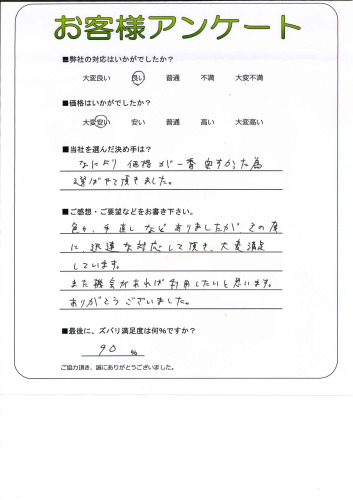 お客様アンケート
■弊社の対応はいかがでしたか?
大変良い 良い 普通 不満 大変不満
■価格はいかがでしたか?
大変安い 安い 普通 高い 大変高い
■当社を選んだ決め手は?
なにより価格が一番安かった為
選ばせて頂きました。
■ご感想・ご要望などをお書き下さい。
色々、手直しなどありましたがその度
に迅速な対応して頂き、大変満足
しています。
また機会があれば利用したいと思います。
ありがとうございました。
■最後に、ズバリ満足度は何%ですか?
90 %
ご協力頂き、誠にありがとうございました。